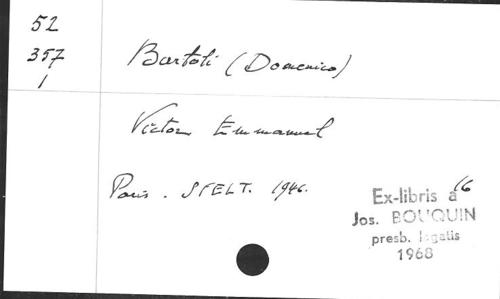 52
357
1
Bartoli (Domenico)
Victor Emmanuel
Paris. SFELT. 1946.
16
Ex-libris a
Jos. BOUQUIN
presb. legatis
1968